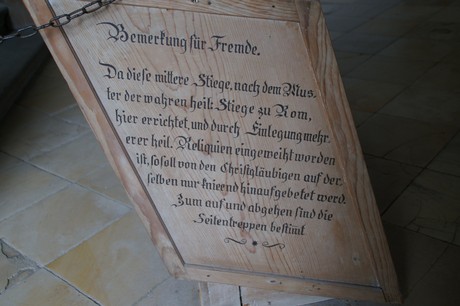 Bemerkung für Fremde.
Da diese mittere Stiege, nach dem Mus-
ter der wahren heil: Stiege zu Rom,
hier errichtet, und durch Einlegung mehr,
erer heil. Reliquien eingeweiht worden
ist, so soll von den Christgläubigen auf der,
selben nur knieend hinaufgebetet werd.
Zum auf und abgehen sind die
Seitentreppen bestimt